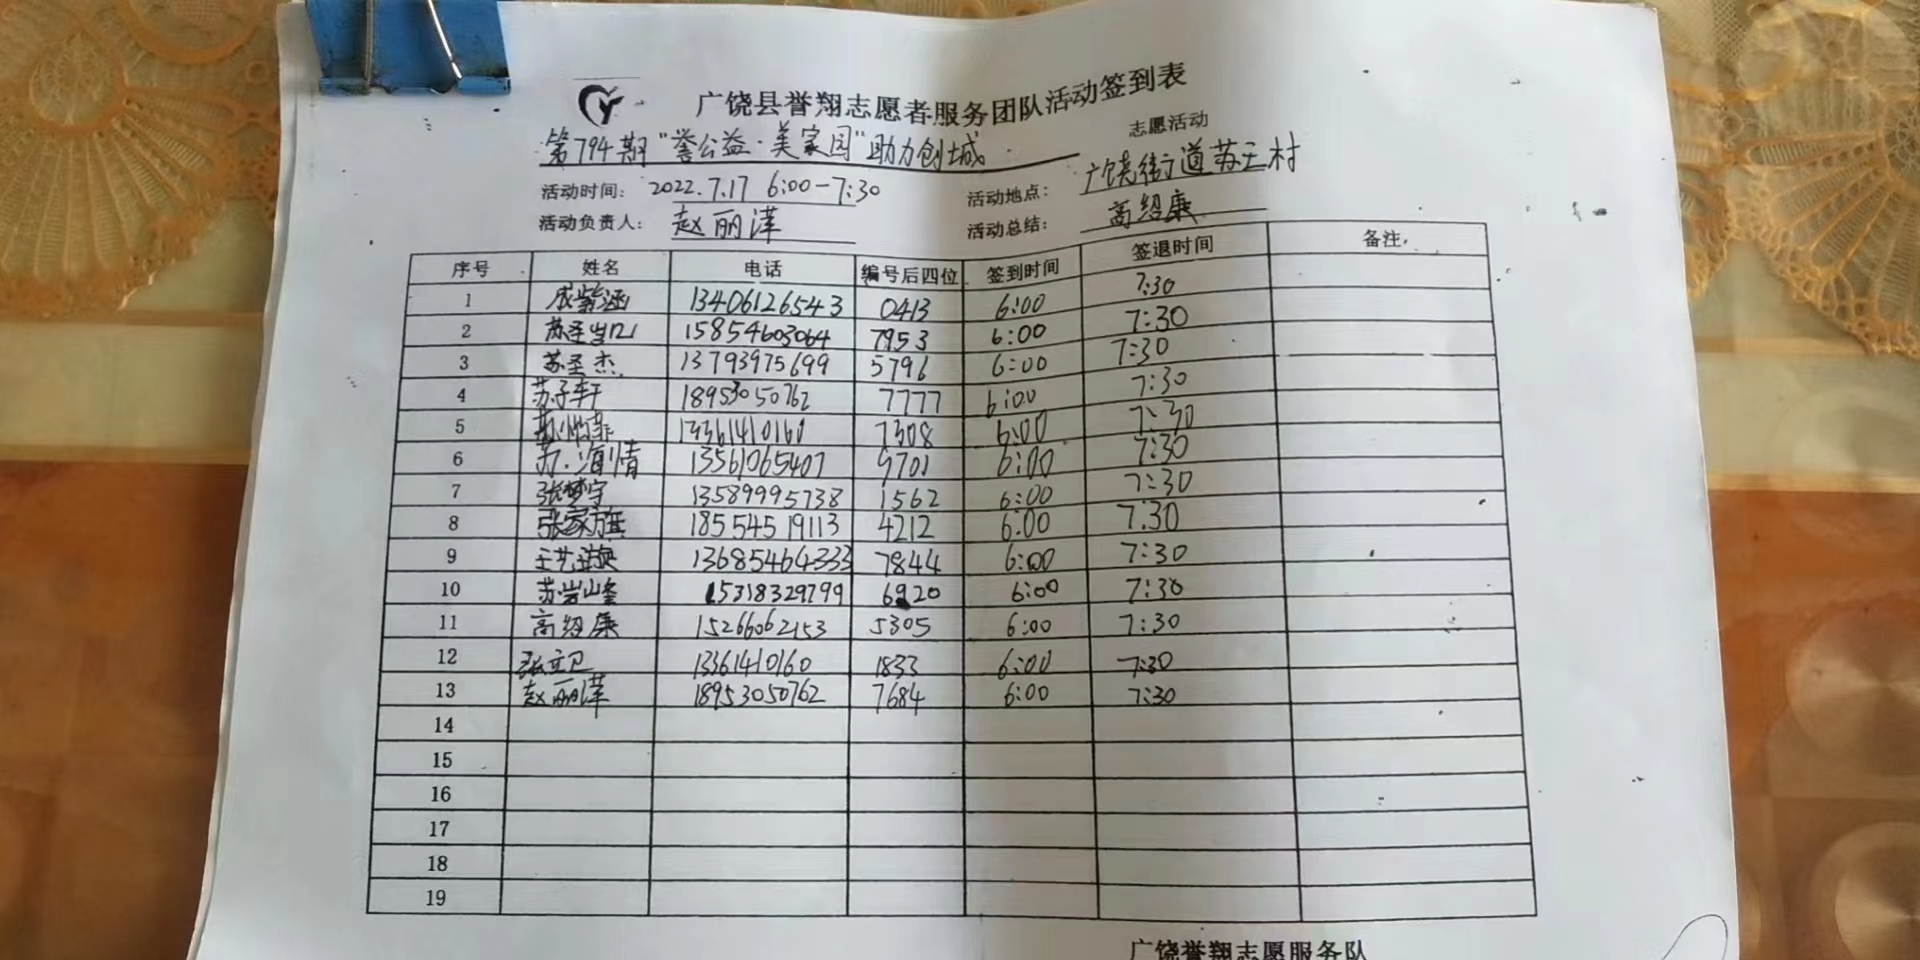 广饶县誉翔志愿者服务团队活动签到表
第794期"誉公益·美家园"助力创城 志愿活动
活动时间: 2022.7.17 6:00-7:30 活动地点: 广饶街道苏王村
活动负责人: 赵丽萍 活动总结: 高绍康
序号 姓名 电话 编号后四位 签到时间 签退时间 备注
1 成紫涵 13406126543 0413 6:00 7:30
2 苏圣 15854603064 7953 6:00 7:30
3 苏圣杰 13793975699 5796 6:00 7:30
4 苏子轩 18953050762 7777 6:00 7:30
5 13361410160 7308 6:00 7:30
6 苏海情 13561065407 9701 6:00 7:30
7 张梦宇 13589995738 1562 6:00 7:30
8 张家旗 18554519113 4212 6:00 7:30
9 王艺 13685464333 7844 6:00 7:30
10 苏岩峰 15318329799 6920 6:00 7:30
11 高绍康 15266062153 5305 6:00 7:30
12 张立卫 13361410160 1833 6:00 7:30
13 赵丽萍 18953050762 7684 6:00 7:30
14
15
16
17
18
19
广饶誉翔志愿服务队